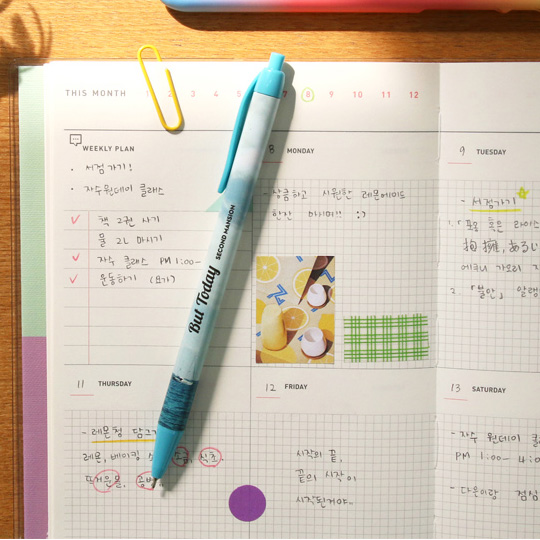 THIS MONTH 7 8 9 10 11 12
WEEKLY PLAN
• 서점 가기!
• 자수 원데이 클래스
✓ 책 2권 사기
물 2L 마시기
✓ 자수 클래스 PM 1:00-
✓ 운동하기 (요가)
But Today SECOND MANSION
8 MONDAY
- 상큼하고 시원한 레몬에이드
한잔 마시며!! :)
9 TUESDAY
- 서점가기
1. 혹은 라이스
抱擁, あるい
에쿠니 가오리
2. 「불안」 알랭
11 THURSDAY
- 레몬청 담그
레몬, 베이킹 소, 식초,
뜨거운물,
12 FRIDAY
시작의 끝,
끝의 시작이
시작된거야~
13 SATURDAY
- 자수 원데이 클
PM 1:00- 4:0
- 다운이랑 점심